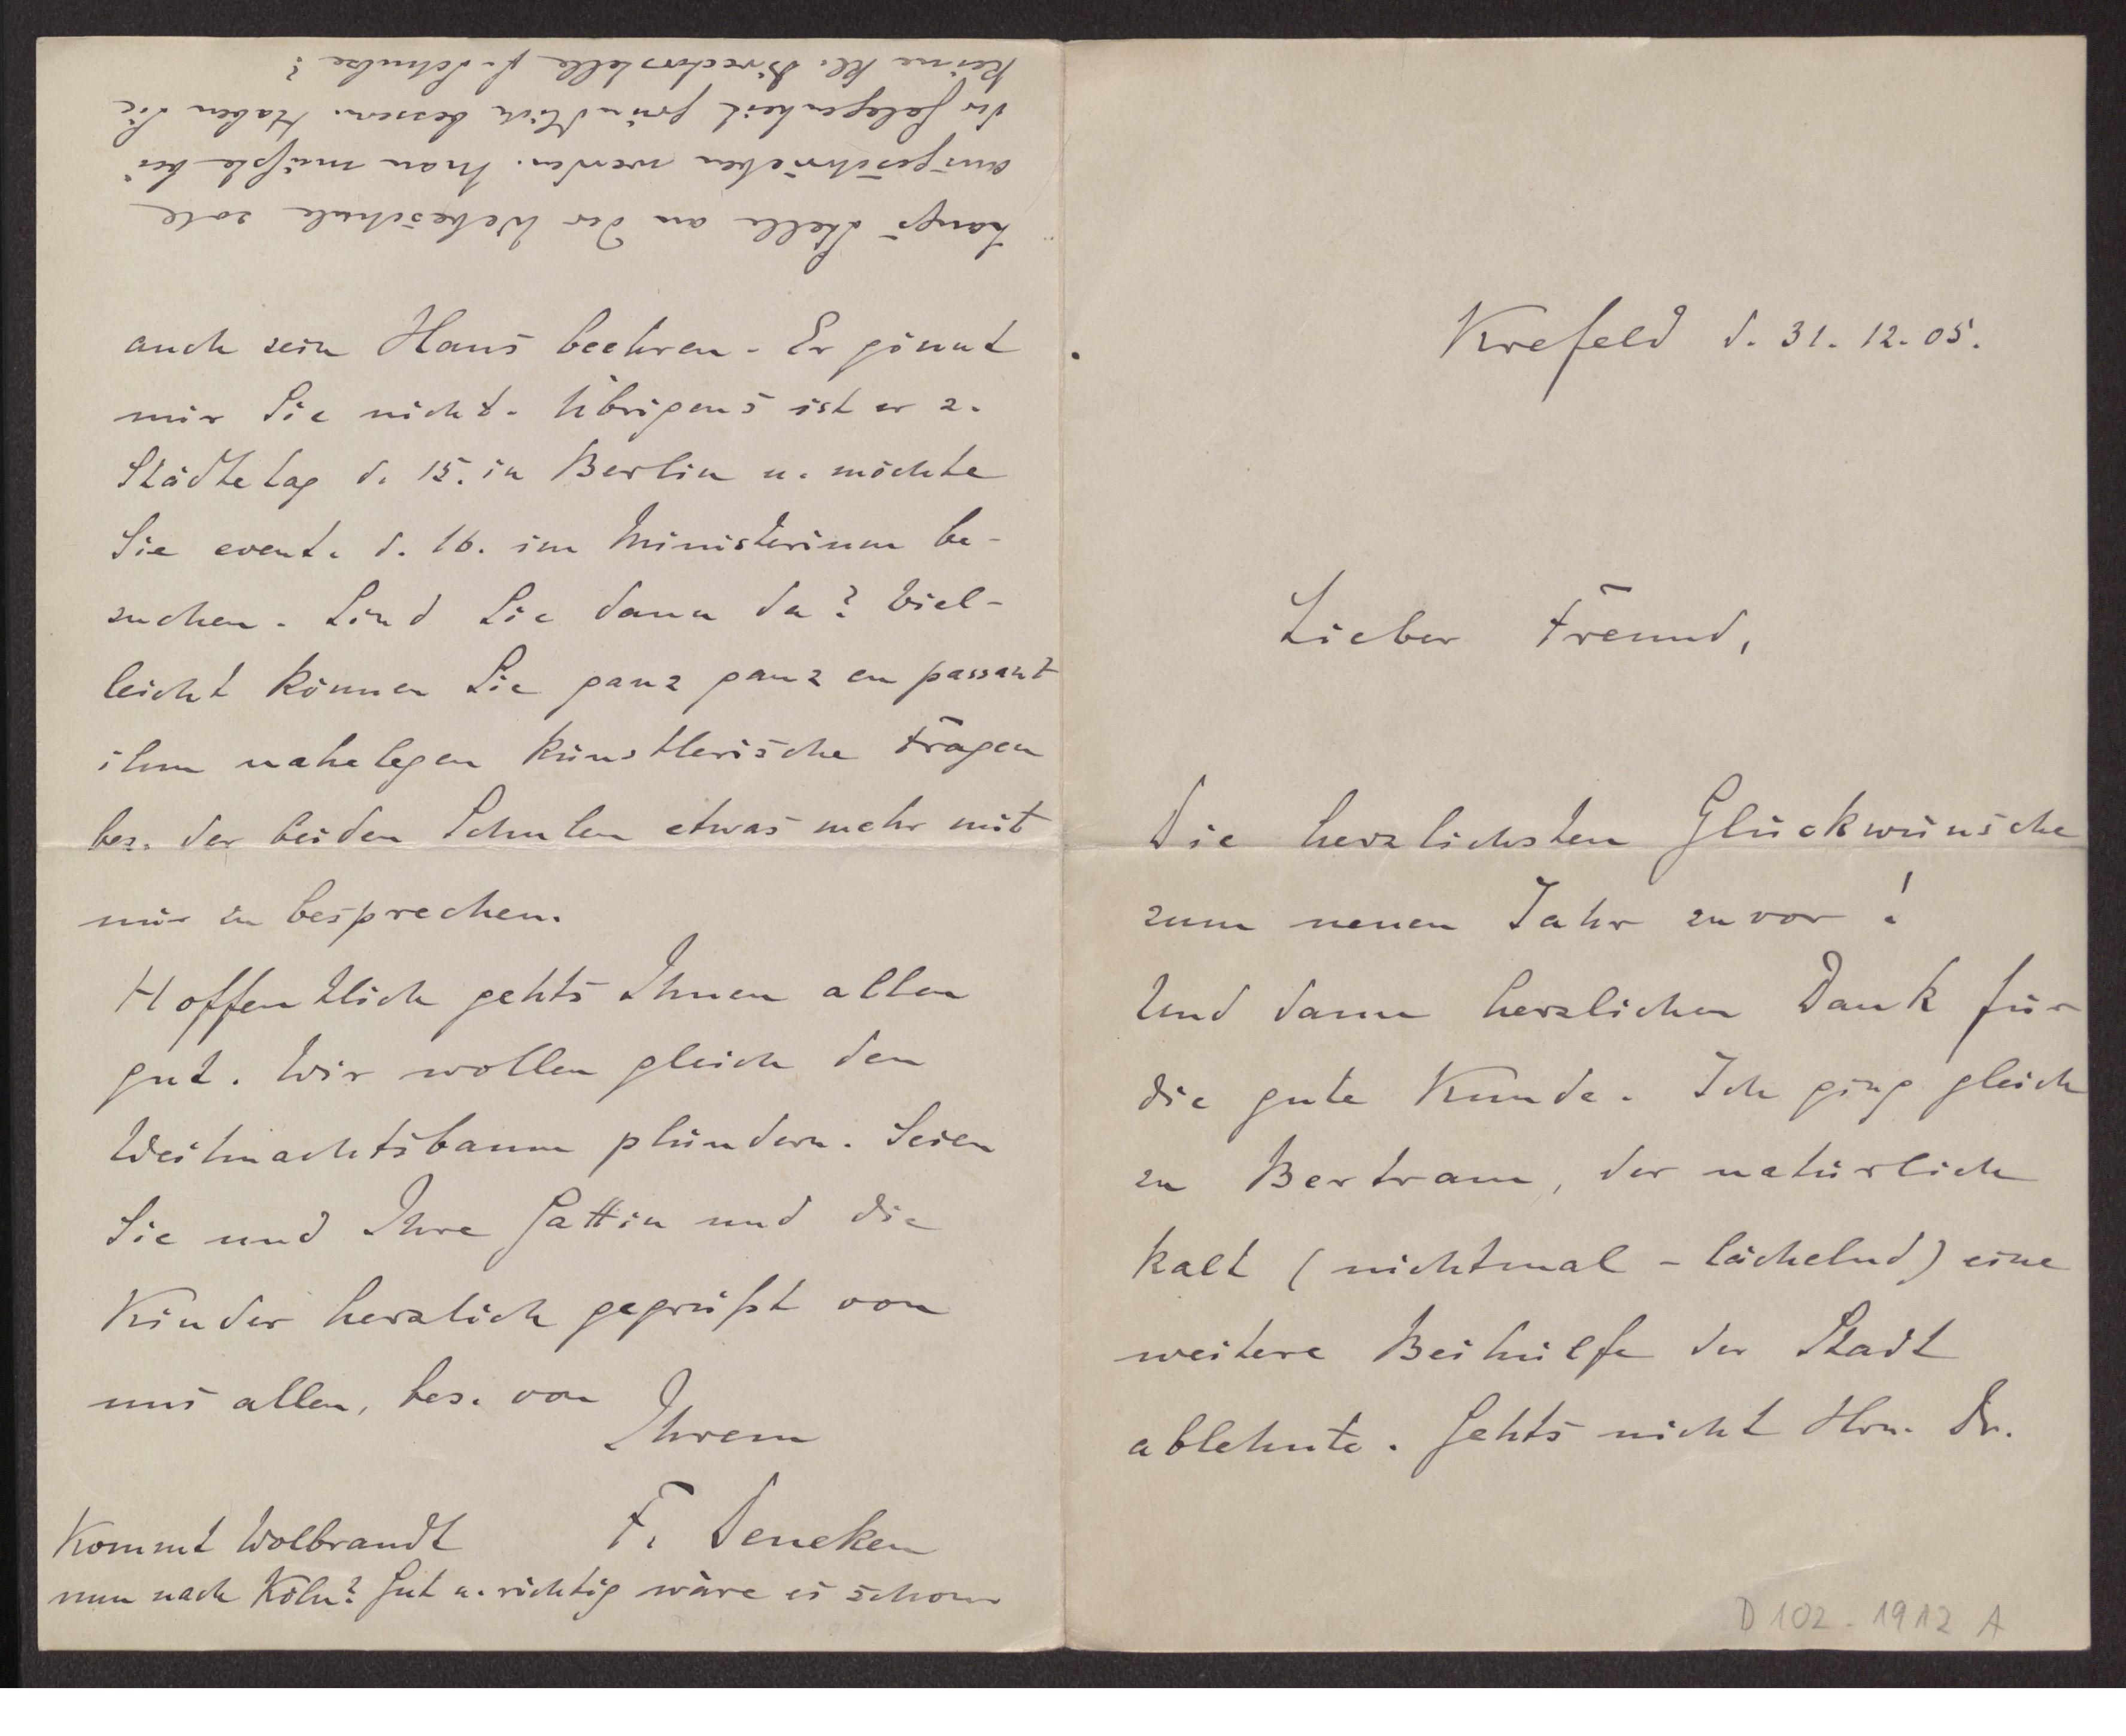 Krefeld d. 31. 12. 05.
Lieber Freund,
Die herzlichsten Glückwünsche
zum neuen Jahr zuvor!
Und dann herzlichen Dank für
die gute Kunde. Ich ging gleich
zu Bertram, der natürlich
kalt (nichtmal - lächelnd) eine
weitere Beihülfe der Stadt
ablehnte. Gehts nicht Hrn. Dr.
D 102 - 1912 A
auch sein Haus beehren. Er gönnt
mir Sie nicht. Übrigens ist er z.
Städtetag d. 15. in Berlin u. möchte
Sie event. d. 16. im Ministerium be-
suchen. Sind Sie dann da? Viel-
leicht können Sie ganz ganz en passant
ihm nahelegen künstlerische Fragen
bes. der beiden Schulen etwas mehr mit
mir zu besprechen.
Hoffentlich gehts Ihnen allen
gut. Wir wollen gleich den
Weihnachtsbaum plündern. Seien
Sie und Ihre Gattin und die
Kinder herzlich gegrüßt von
uns allen, bes. von
Ihrem
F. Deneken
Kommt Wolbrandt
nun nach Köln? Gut u. richtig wäre es schon
Langs Stelle an der Webeschule
ausgeschrieben werden. Man müßte bei
der Gelegenheit gründlich bessern. Haben Sie
keine kl. Directorstelle f. Schulze?